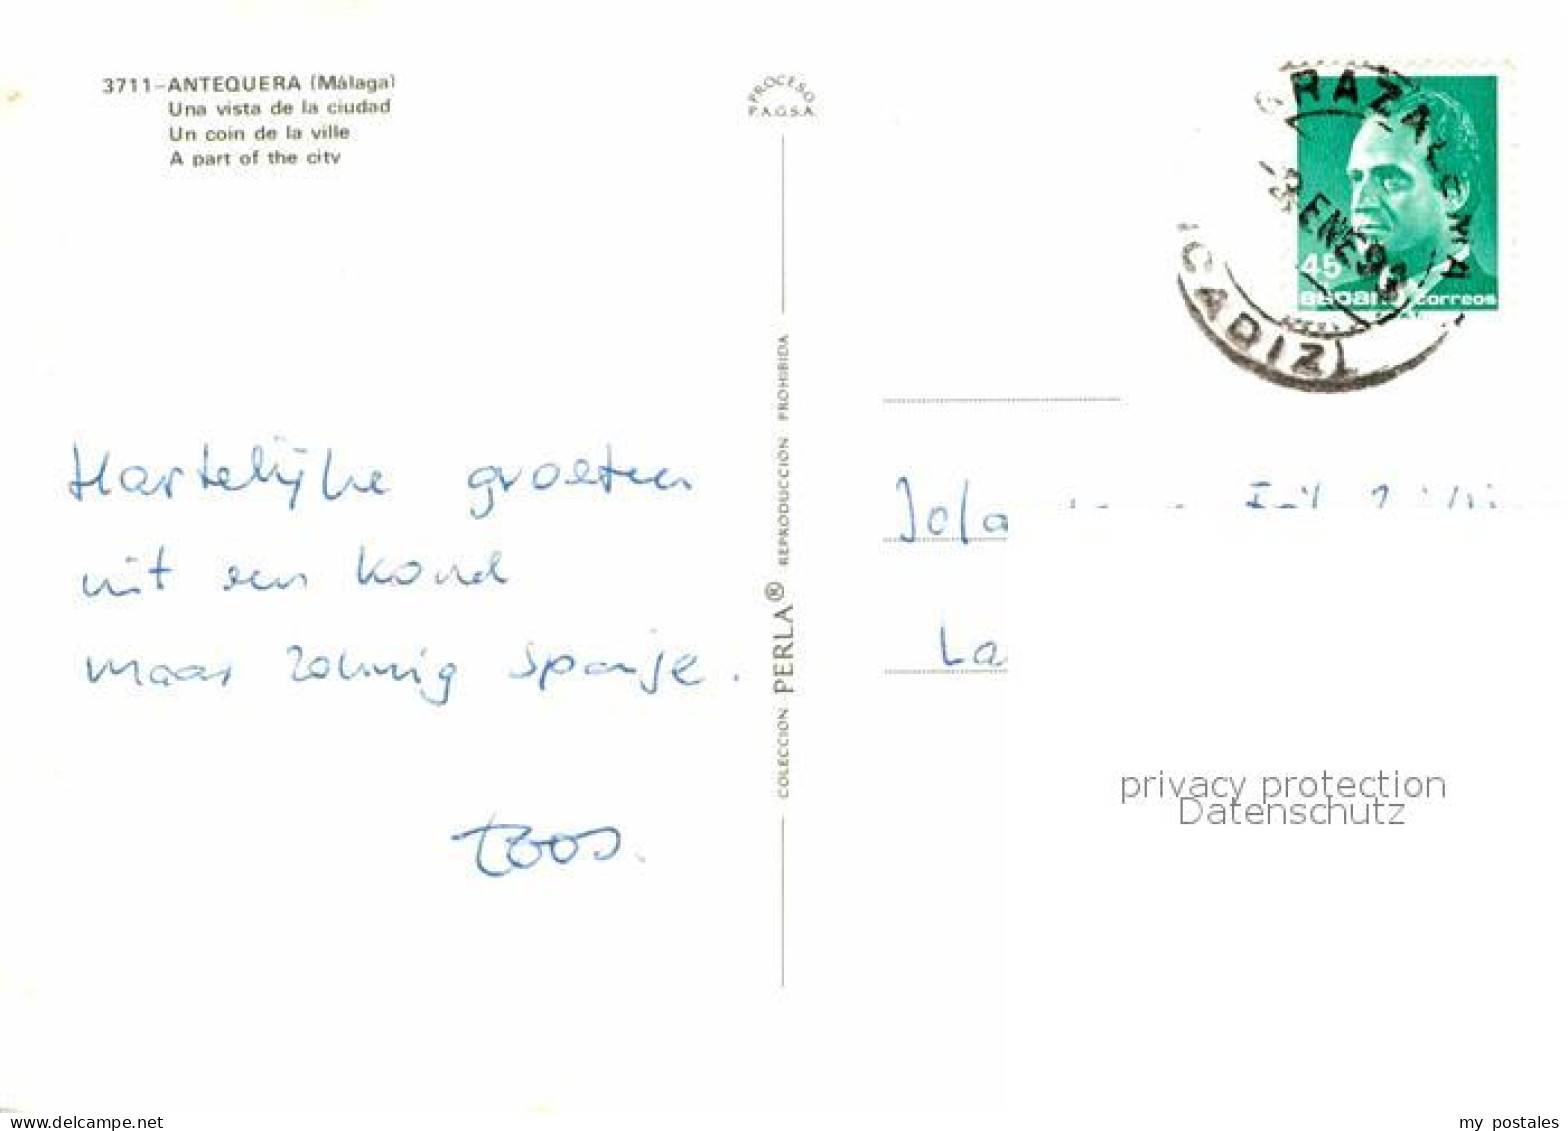 3711-ANTEQUERA (Málaga)
Una vista de la ciudad
Un coin de la ville
A part of the city
PROCESO
P.A.G.S.A.
GRAZALEMA
ENE
(CADIZ)
45
España correos
Hartelijke groeten
uit een koud
maar zonnig Spanje.
Toos.
COLECCION PERLA® REPRODUCCION PROHIBIDA
Jola
La
privacy protection
Datenschutz
delcampe.net
my_postales